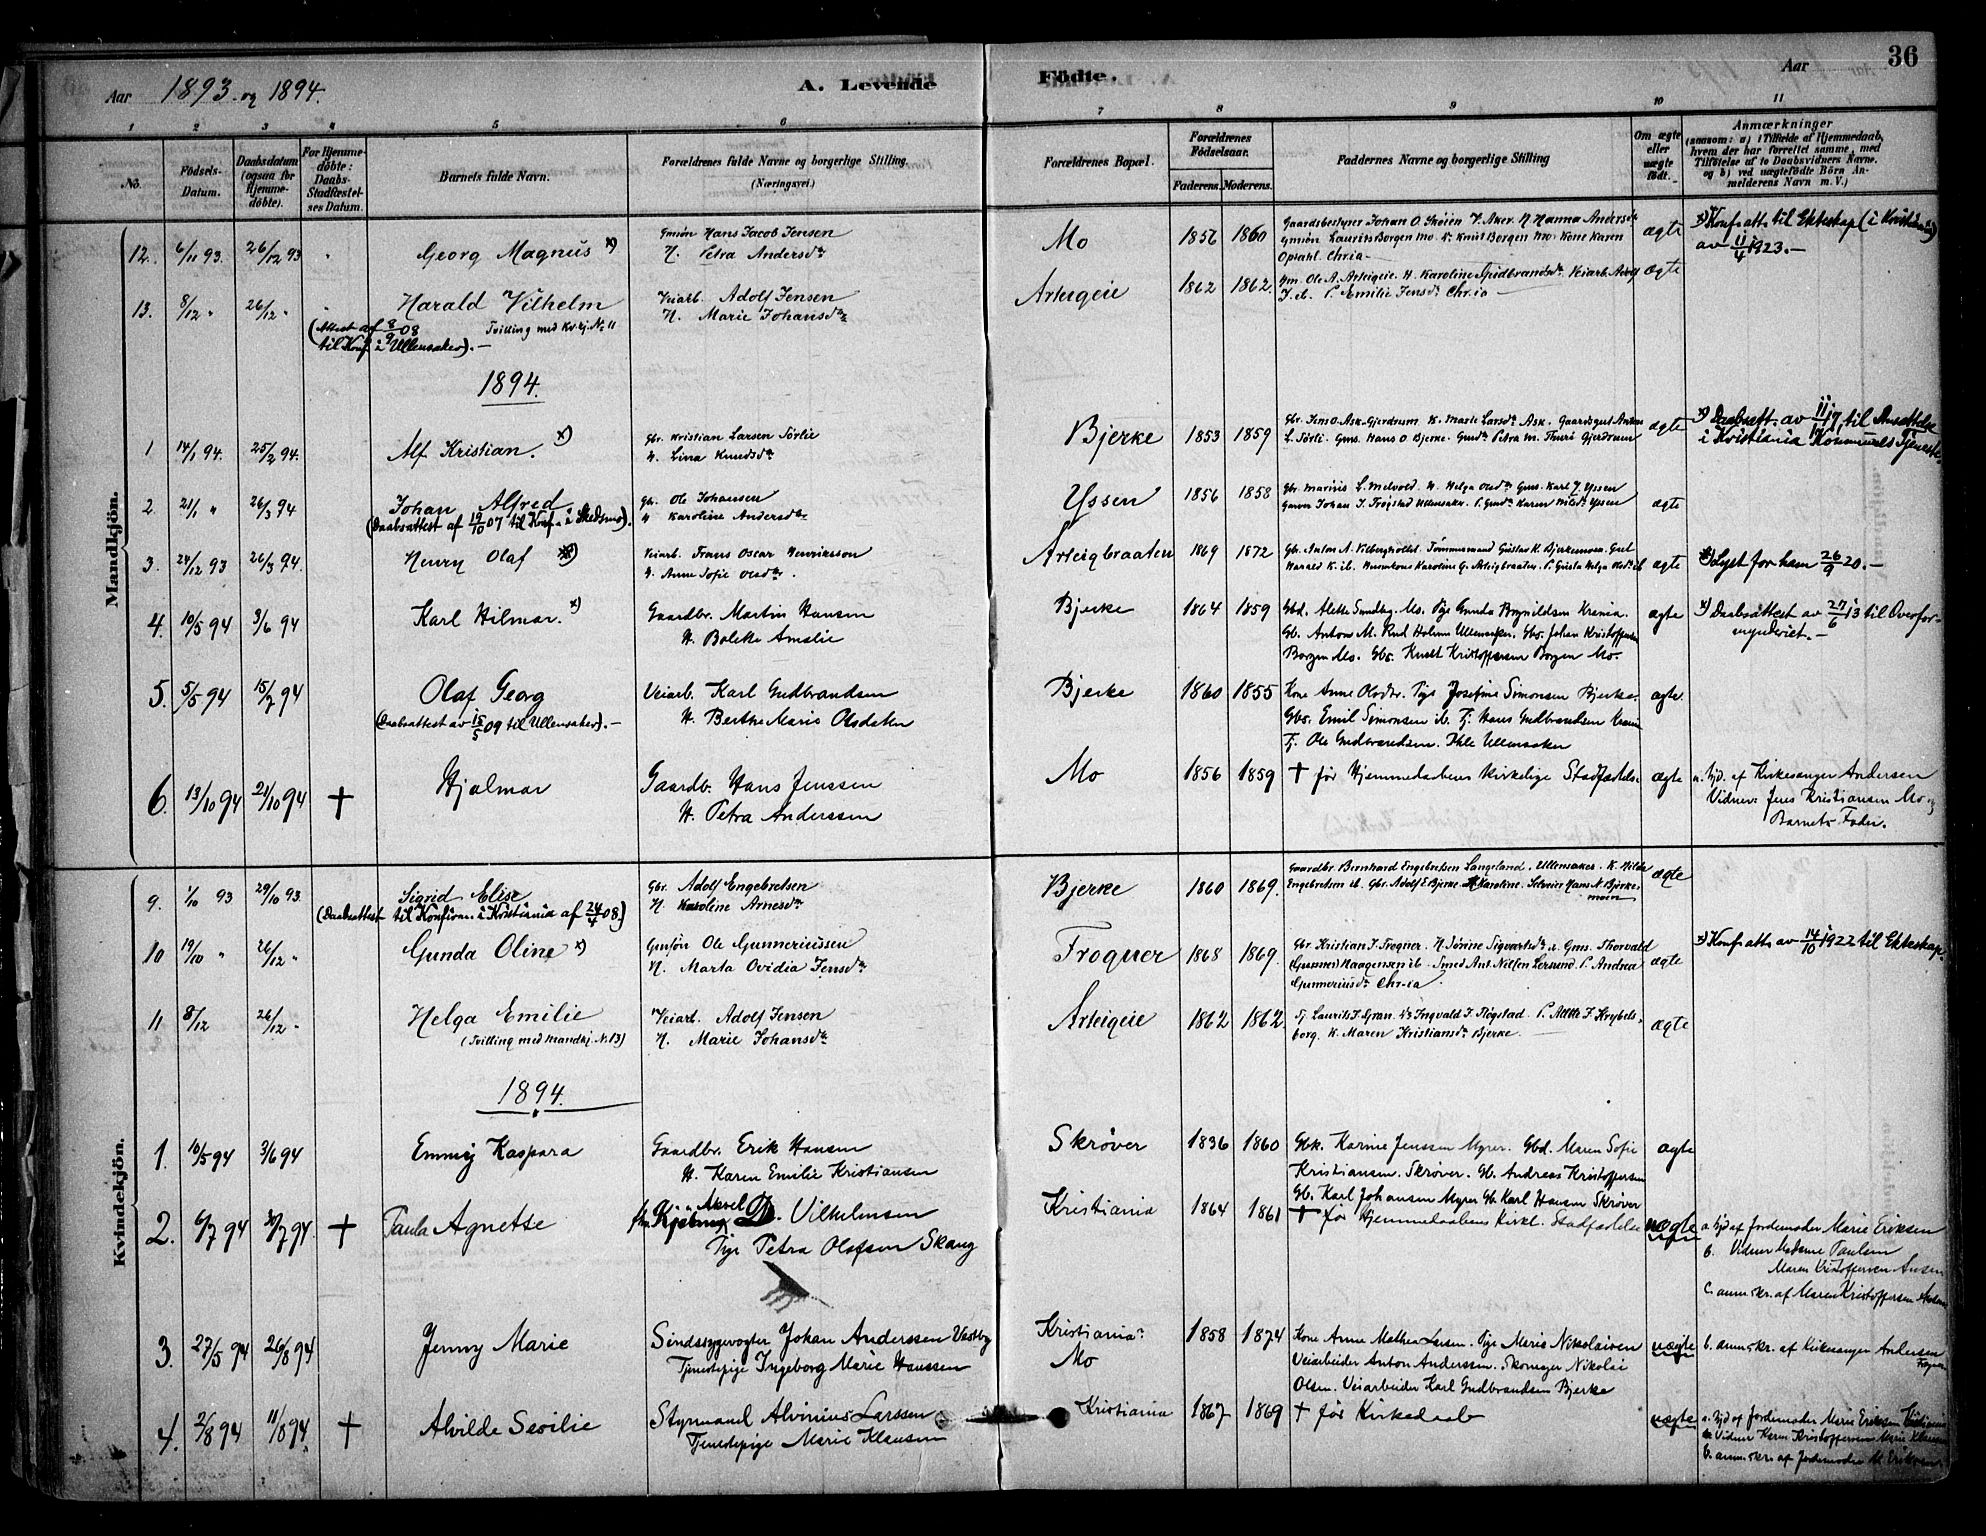 36
Aar 1893 og 1894.
A. Levende Födte.
Aar
1 2 3 4 5 6 7 8 9 10 11
No.
Födsels-Datum.
Daabsdatum (ogsaa for Hjemmedöbte).
For Hjemmedöbte: Daabs-Stadfæstelses Datum.
Barnets fulde Navn.
Forældrenes fulde Navne og borgerlige Stilling.
(Næringsvei.)
Forældrenes Bopæl.
Forældrenes Födselsaar.
Faderens. Moderens.
Faddernes Navne og borgerlige Stilling
Om ægte eller uægte födt.
Anmærkninger
(saasom: a) i Tilfælde af Hjemmedaab, hvem der har forrettet samme, med Tilföielse af to Daabsvidners Navne. og b) ved uægtefödte Börn Anmelderens Navn m. V.)
Mandkjön.
12. 6/11 93. 26/12 93 Georg Magnus x) Gmsön Hans Jacob Jensen
H. Petra Andersdr
Mo 1856 1860 Gaardsbestyrer Johan O. Skøien V. Aker. H Hanna Andersdr
Gmsön Laurits Borgen Mo. Knut Borgen Mo. Kone Karen
Opsahl Chria
ægte x) Konf. atts. til Ekteskap (i Kristiania)
av 11/4 1923.-
13. 8/12 " 26/12 " Harald Vilhelm Veiarb. Adolf Jensen
Tvilling med Kv.kj. No 11 H. Marie Johansdr
(Attest af 8/9 08
til Konf. i Ullensaker).-
Arteigeie 1862 1862. Gm. Ole A. Arteigeie. H. Karoline Gudbrandsdr. Veiarb. Adolf
J. ib. P. Emilie Jensdr Chr.ia
ægte
1894.
1 14/1 94. 25/2 94. Alf Kristian. x) Gbr. Kristian Larsen Sörlie
H. Lina Knudsdr
Bjerke 1853 1859 Gbr. Jens O. Ask Gjerdrum K. Marie Larsdr Ask. Gaardsgut Anton
L. Sörli. Gms. Hans O Bjerke. Gmdr Petra M. Thuri Gjerdrum
ægte x) Daabsatt. av 11/1 17 til Ansættelse
i Kristiania Kommunes Tjeneste.
2. 21/1 " 26/3 94 Johan Alfred Gbr. Ole Johansen
(Daabsattest af 19/10 07 til Konf. i Skedsmo). H. Karoline Andersdr
Yssen 1856 1858 Gbr. Marinis L. Melvold. H. Helga Olsdr Gms. Karl J. Yssen
Garver Johan J. Frogstad Ullensaker. P. Gmdr Karen Yssen
ægte
3. 24/12 93 26/3 94. Henry Olaf x) Veiarb. Frans Oscar Henriksson
H. Anne Sofie Olsdr.
Arteigbraaten 1869 1872 Gbr. Anton A. Kilberghollet. Tömmermand Gustav K. Bjerkemoen. Gut
Harald K. ib. Huuskone Karoline G. Arteigbraaten. P. Gusta Helga Olsdr ib
ægte x) Lyst for ham 26/9 20.-
4. 10/5 94 3/6 94 Karl Hilmar. x) Gaardbr. Martin Hansen
H. Bolette Amalie
Bjerke 1864 1859 Gbd. Alette Sundby. Mo. Pige Gunda Brynildsen Krania.
Gb. Anton M. Rud Holum Ullensaker. Gbs. Johan Kristoffersen
Borgen Mo. Gbs. Knudt Kristoffersen Borgen Mo.
ægte x) Daabsattest av 27/6 13 til Overfor-
mynderiet.-
5. 5/5 94 15/7 94 Olaf Georg Veiarb. Karl Gudbrandsen
(Daabsattest av 15/5 09 til Ullensaker).- H. Berthe Marie Olsdatter
Bjerke 1860 1855 Kone Anne Olsdtr. Pige Josefine Simonsen Bjerke.
Gbs. Emil Simonsen ib. Tj. Hans Gudbrandsen Krania
Tj. Ole Gudbrandsen. Ihle Ullensaker
ægte.
6. 13/10 94 21/10 94 + Hjalmar Gaardb. Hans Jenssen
H. Petra Anderssen
Mo 1856 1859 + før Hjemmedaabens kirkelige Stadfæstelse
ægte a. Hjd. af Kirkesanger Andersen
Vidner: Jens Kristiansen Mo og
Barnets Fader.
Kvindekjön.
9. 1/10 93 29/10 93. Sigrid Elise Gbr. Adolf Engebretsen
(Daabsattest til Konfirm. i Kristiania af 24/4 08.) H. Karoline Arnesdr
Bjerke 1860 1869. Gaardbr. Bernhard Engebretsen Langeland. Ullensaker. K. Hilda
Engebretsen ib. Gbr. Adolf E Bjerke. H Karoline. Selveier Hans N Bjerke-
moen
ægte
10 19/10 " 26/12 " Gunda Oline x) Gmsøn Ole Gunneriussen
H. Marta Ovidia Jensdr
Frogner 1868 1869. Gbr. Kristian J. Frogner. H Sörine Sigvartsdr ib. Gms. Thorvald
(Gunner) Haagensen ib. Smed Ant. Nilsen Lersund. P. Andrea
Gunneriusdr Chr.ia
ægte x) Konf. atts av 14/10 1922 til Ekteskap.
11 8/12 26/12 " Helga Emilie Veiarb. Adolf Jensen
(Tvilling med Mandkj. N. 13) H. Marie Johansdr
Arteigeie 1862 1862. Tj. Laurits J. Gran. Ingvald J. Flögstad. P. Alette J. Krybels-
borg. K. Maren Kristiansdr Bjerke.
ægte
1894.
1. 10/5 94 3/6 94 Emmy Kaspara Gaardbr. Erik Hansen
H. Karen Emilie Kristiansen
Skrøver 1836 1860 Gbk. Karine Jenssen Myrer. Gbd. Maren Sofie
Kristiansen. Skrøver. Gb. Andreas Kristoffersen
Gb. Karl Johansen Myrer Gb. Karl Hansen Skrøver
ægte
2. 6/7 94 94. + Paula Agnette Axvel D. Vilhelmsen
Pige Petra Olafsen Skaug
Kristiania 1864 1861 + før Hjemmedaabens Kirkl. Stadfæstelse
uægte a. Hjd af Jordemoder Marie Eriksen
b. Vidner Madame Paulsen
Maren Kristoffersen
c. anm. skr. af Maren Kristoffersen
3. 27/5 94 26/8 94 Jenny Marie Sindssygevogter Johan Anderssen Vestby
Tjenestepige Ingeborg Marie Hanssen
Kristiania
Mo 1858 1874 Kone Anne Mathea Larsen. Pige Marie Nikolaisen
Veiarbeider Anton Anderssen. Skomager Nikolai
Olsen. Veiarbeider Karl Gudbrandsen Bjerke
uægte b. anm. skr. af Kirkesanger Andersen
Frogner
4. 2/8 94 11/8 94. + Alvilde Sesilie Styrmand Alvinius Larssen
Tjenestepige Marie Klausen
Kristiania 1867 1869 + før Kirkedaab
uægte a. Hjd af Jordemoder Marie Eriksen
Vidner Karen Kristoffersen Marie Klausen
b. anm. skr. af Jordemoder M. Eriksen